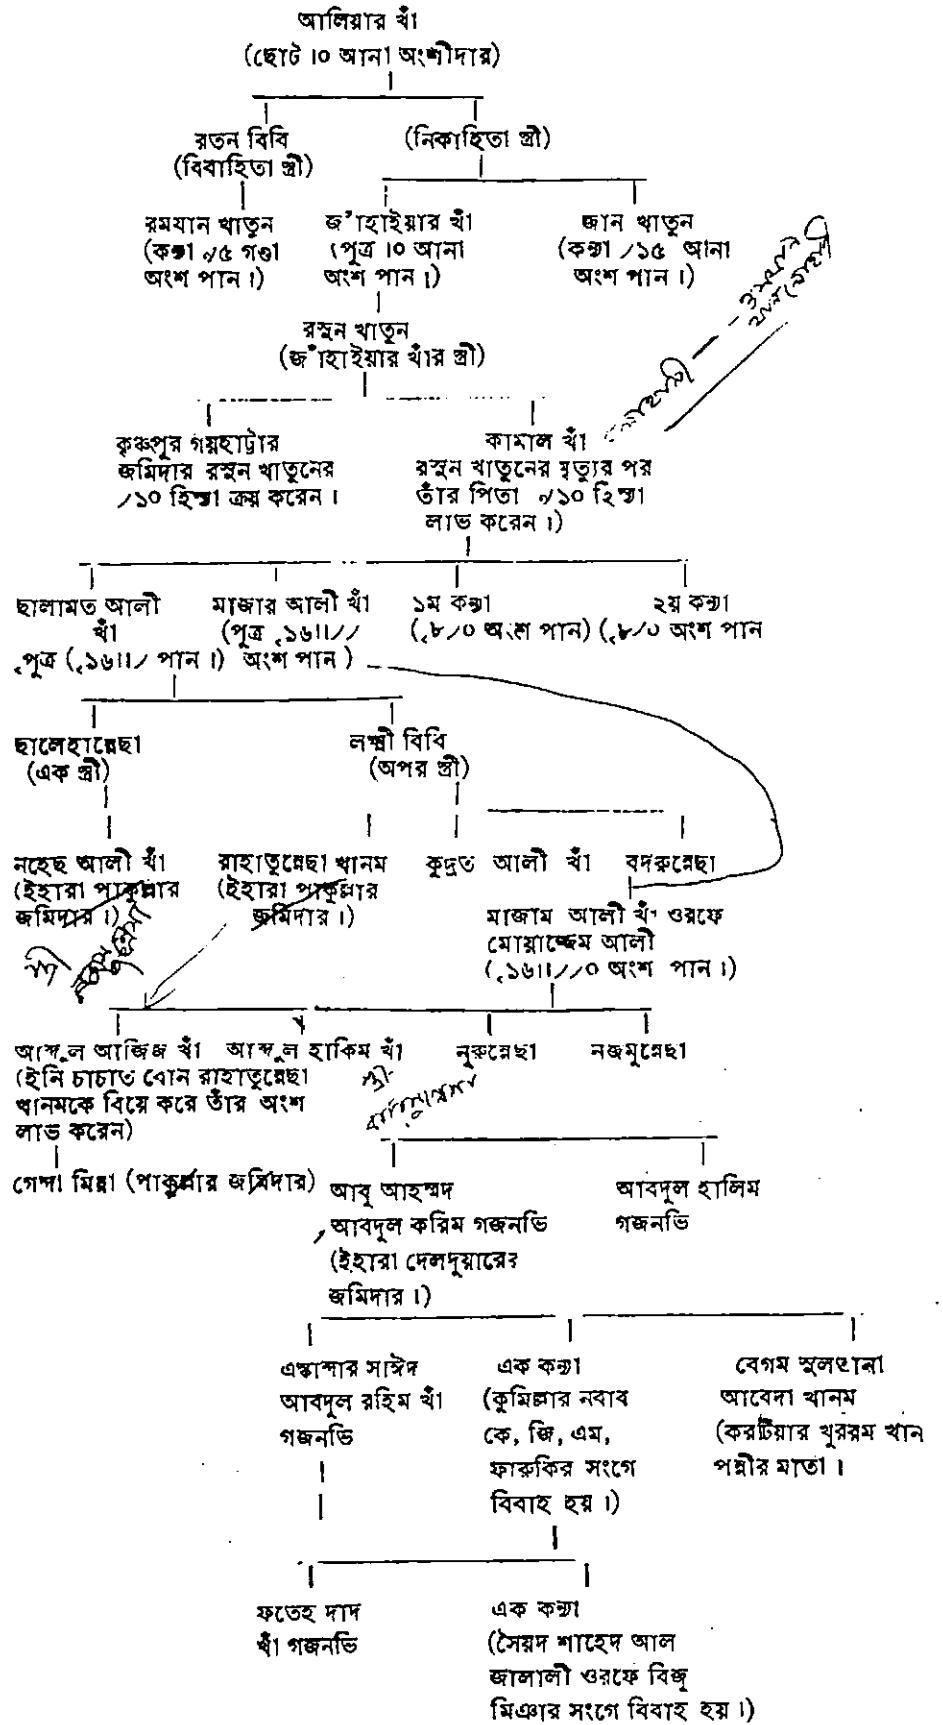 আলিয়ার খাঁ
(ছোট ।০ আনা অংশীদার)
রতন বিবি
(বিবাহিতা স্ত্রী)
(নিকাহিতা স্ত্রী)
রমযান খাতুন
(কন্যা ৵৫ গণ্ডা
অংশ পান।)
জাঁহাইয়ার খাঁ
(পুত্র ।০ আনা
অংশ পান।)
জান খাতুন
(কন্যা ৴১৫ আনা
অংশ পান।)
রসুন খাতুন
(জাঁহাইয়ার খাঁর স্ত্রী)
কৃষ্ণপুর গয়হাট্টার
জমিদার রসুন খাতুনের
৴১০ হিস্যা ক্রয় করেন।
কামাল খাঁ
রসুন খাতুনের মৃত্যুর পর
তাঁর পিতা ৵১০ হিস্যা
লাভ করেন।)
ছালামত আলী
খাঁ
পুত্র (.১৬॥৴ পান।)
মাজার আলী খাঁ
(পুত্র .১৬॥৴৴
অংশ পান)
১ম কন্যা
(.৮৴০ অংশ পান)
২য় কন্যা
(.৮৴০ অংশ পান
ছালেহান্নেছা
(এক স্ত্রী)
লক্ষ্মী বিবি
(অপর স্ত্রী)
নহেছ আলী খাঁ
(ইহারা পাকুল্লার
জমিদার।)
রাহাতুন্নেছা খানম
(ইহারা পাকুল্লার
জমিদার।)
কুদ্রত আলী খাঁ
বদরুন্নেছা
মাজাম আলী খাঁ ওরফে
মোয়াজ্জেম আলী
(.১৬॥৴৴০ অংশ পান।)
স্ত্রী
আব্দুল আজিজ খাঁ
(ইনি চাচাত বোন রাহাতুন্নেছা
খানমকে বিয়ে করে তাঁর অংশ
লাভ করেন)
আব্দুল হাকিম খাঁ
নূরুন্নেছা
নজমুন্নেছা
স্ত্রী
গেন্দা মিয়া (পাকুল্লার জমিদার)
আবু আহম্মদ
আবদুল করিম গজনভি
(ইহারা দেলদুয়ারের
জমিদার।)
আবদুল হালিম
গজনভি
এস্কান্দার সাঈদ
আবদুল রহিম খাঁ
গজনভি
এক কন্যা
(কুমিল্লার নবাব
কে, জি, এম,
ফারুকির সংগে
বিবাহ হয়।)
বেগম সুলতানা
আবেদা খানম
(করটিয়ার খুররম খান
পন্নীর মাতা।
ফতেহ দাদ
খাঁ গজনভি
এক কন্যা
(সৈয়দ শাহেদ আল
জালালী ওরফে বিজু
মিঞার সংগে বিবাহ হয়।)